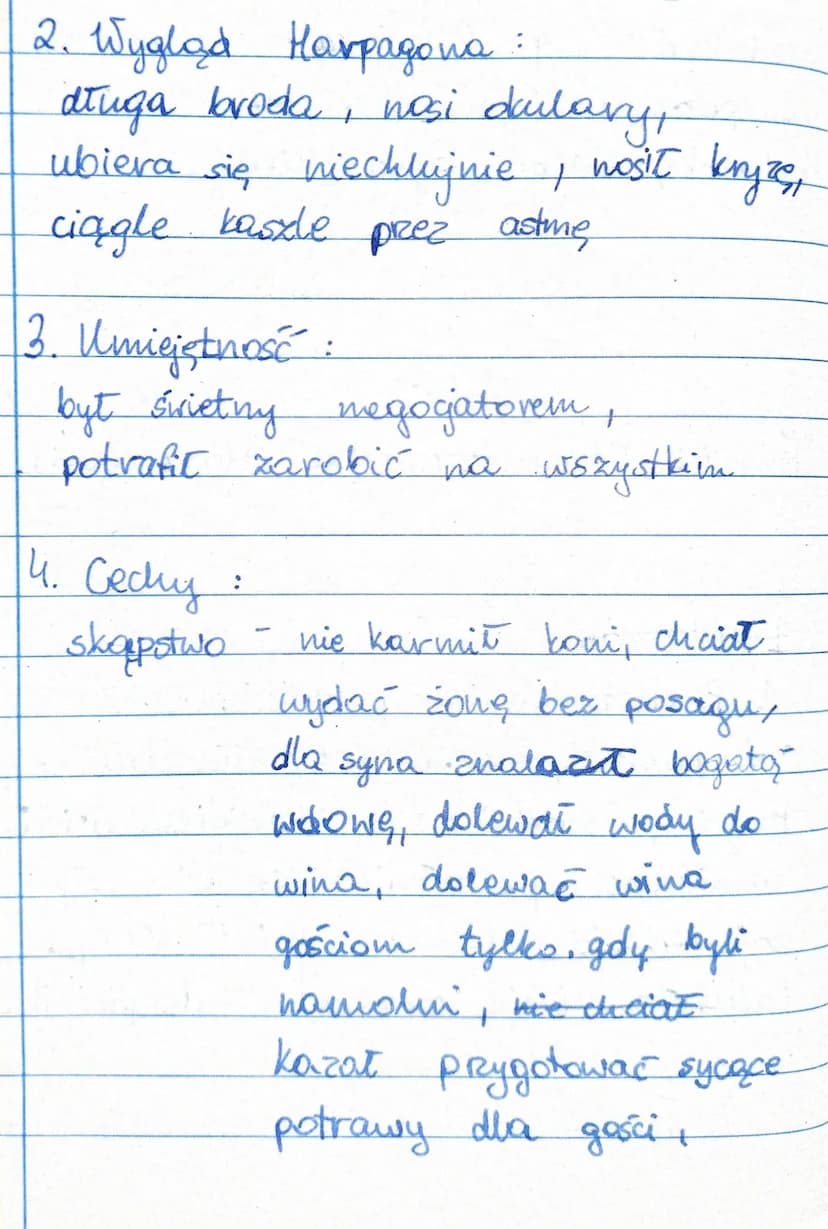 2. Wygląd Harpagona :
długa broda, nosi okulary,
ubiera się niechlujnie, nosił kryzę,
ciągle kaszle przez astmę
3. Umiejętność :
był świetny negocjatorem,
potrafił zarobić na wszystkim
4. Cechy :
skąpstwo - nie karmił koni, chciał
wydać żonę bez posagu,
dla syna znalazł bogatą
wdowę, dolewał wody do
wina, dolewać wina
gościom tylko gdy byli
namolni, nie chciał
kazał przygotować sycące
potrawy dla gości,